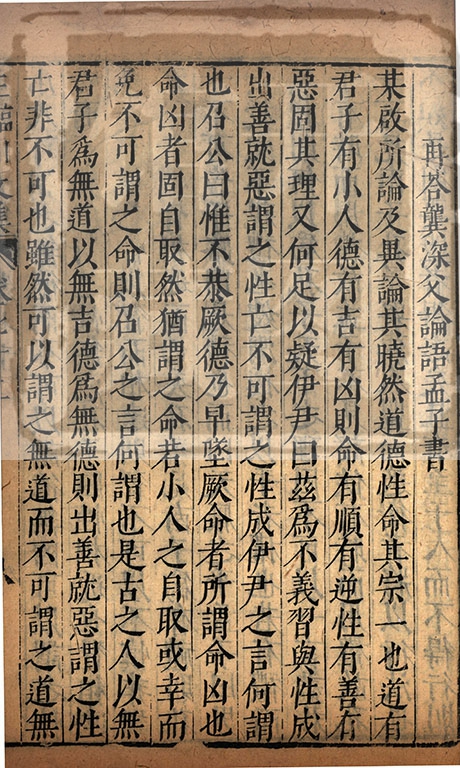 再荅龔深父論語孟子書
某啟所論及異論其曉然道德性命其宗一也道有
君子有小人德有吉有凶則命有順有逆性有善有
惡固其理又何足以疑伊尹曰茲爲不義習與性成
出善就惡謂之性亡不可謂之性成伊尹之言何謂
也召公曰惟不恭厥德乃早墜厥命者所謂命凶也
命凶者固自取然猶謂之命若小人之自取或幸而
免不可謂之命則召公之言何謂也是古之人以無
君子爲無道以無吉德爲無德則出善就惡謂之性
亡非不可也雖然可以謂之無道而不可謂之道無